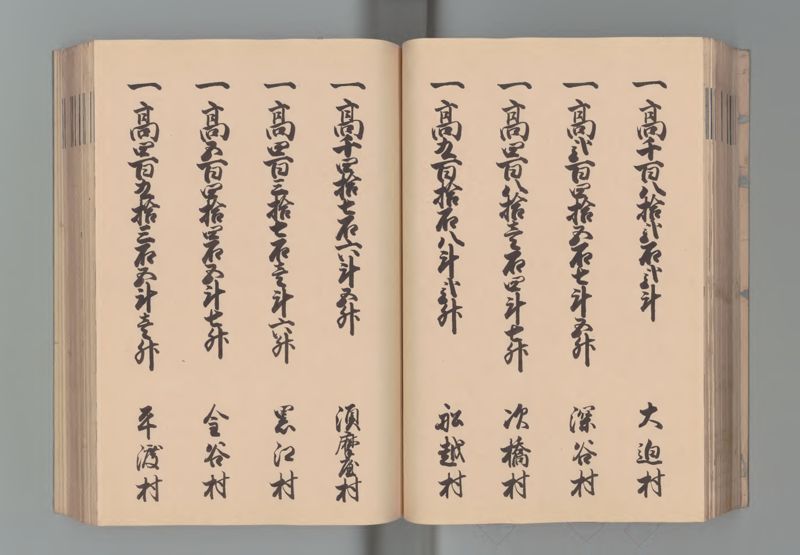 一 高千百八拾弐石弐斗 大迫村
一 高弐百四拾五石七斗五升 深谷村
一 高四百八拾壱石四斗七升 次橋村
一 高九百拾石八斗弐升 船越村
一 高千四拾七石六斗五升 須摩屋村
一 高四百三拾七石壱斗六升 黒江村
一 高五百四拾四石五斗七升 金谷村
一 高四百九拾三石五斗壱升 平渡村